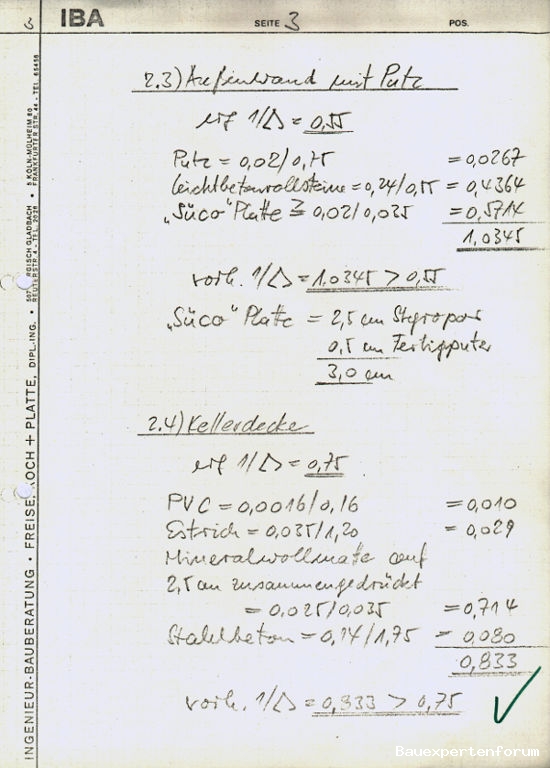 3 IBA SEITE 3 POS.
2.3) Außenwand mit Putz
erf 1/Λ = 0,55
Putz = 0,02/0,75 = 0,0267
Leichtbetonvollsteine = 0,24/0,55 = 0,4364
„Süco" Platte ≧ 0,02/0,035 = 0,5714
1,0345
vorh. 1/Λ = 1,0345 > 0,55
„Süco" Platte = 2,5 cm Styropor
0,5 cm Fertigputz
3,0 cm
2.4) Kellerdecke
erf 1/Λ = 0,75
PVC = 0,0016/0,16 = 0,010
Estrich = 0,035/1,20 = 0,029
Mineralwollmatte auf
2,5 cm zusammengedrückt
= 0,025/0,035 = 0,714
Stahlbeton = 0,14/1,75 = 0,080
0,833
vorh. 1/Λ = 0,833 > 0,75 ✓
INGENIEUR-BAUBERATUNG • FREISE, KOCH + PLATTE, DIPL.-ING. •
GISCH GLADBACH • 5 KÖLN-MÜLHEIM 80
FRANKFURTER STR. 44 - TEL.
Bauexpertenforum